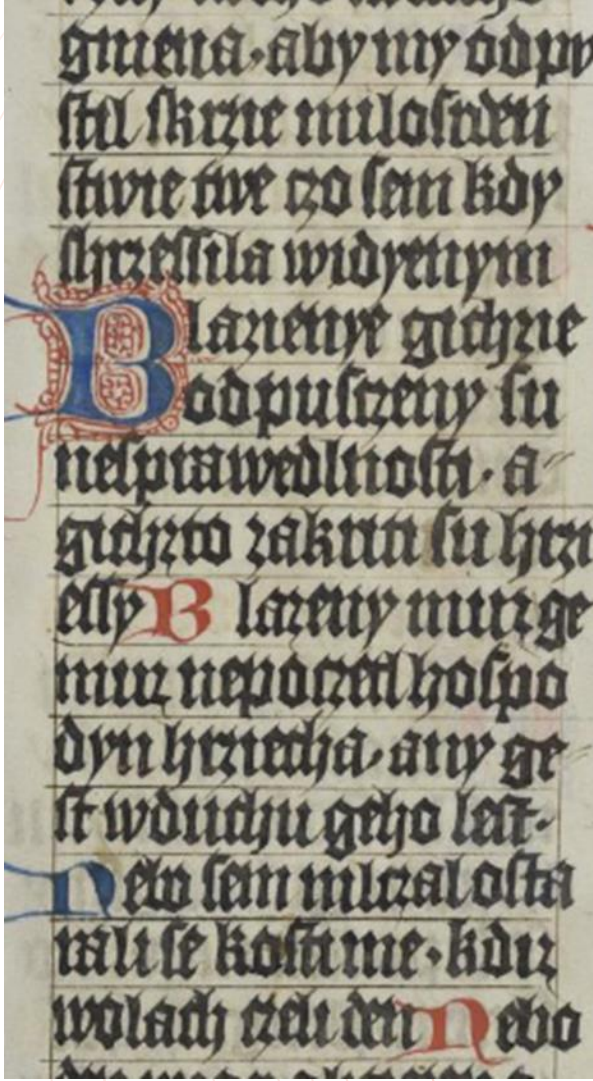 gmena · aby my odpu
stil skrzie milosrden
stwie twe czo sem kdy
shrzessila widyenym
Blazienye gichzie
odpusczeny su
nesprawedlnosti · a
gichzto zakriti su hrzi
essy Blazeny muz ge
muz nepocztl hospo
dyn hrziecha, any ge
st wduchu geho lest ·
Nebo sem mlczal osta
rali se kosti me · kdiz
wolach czeli den Nebo